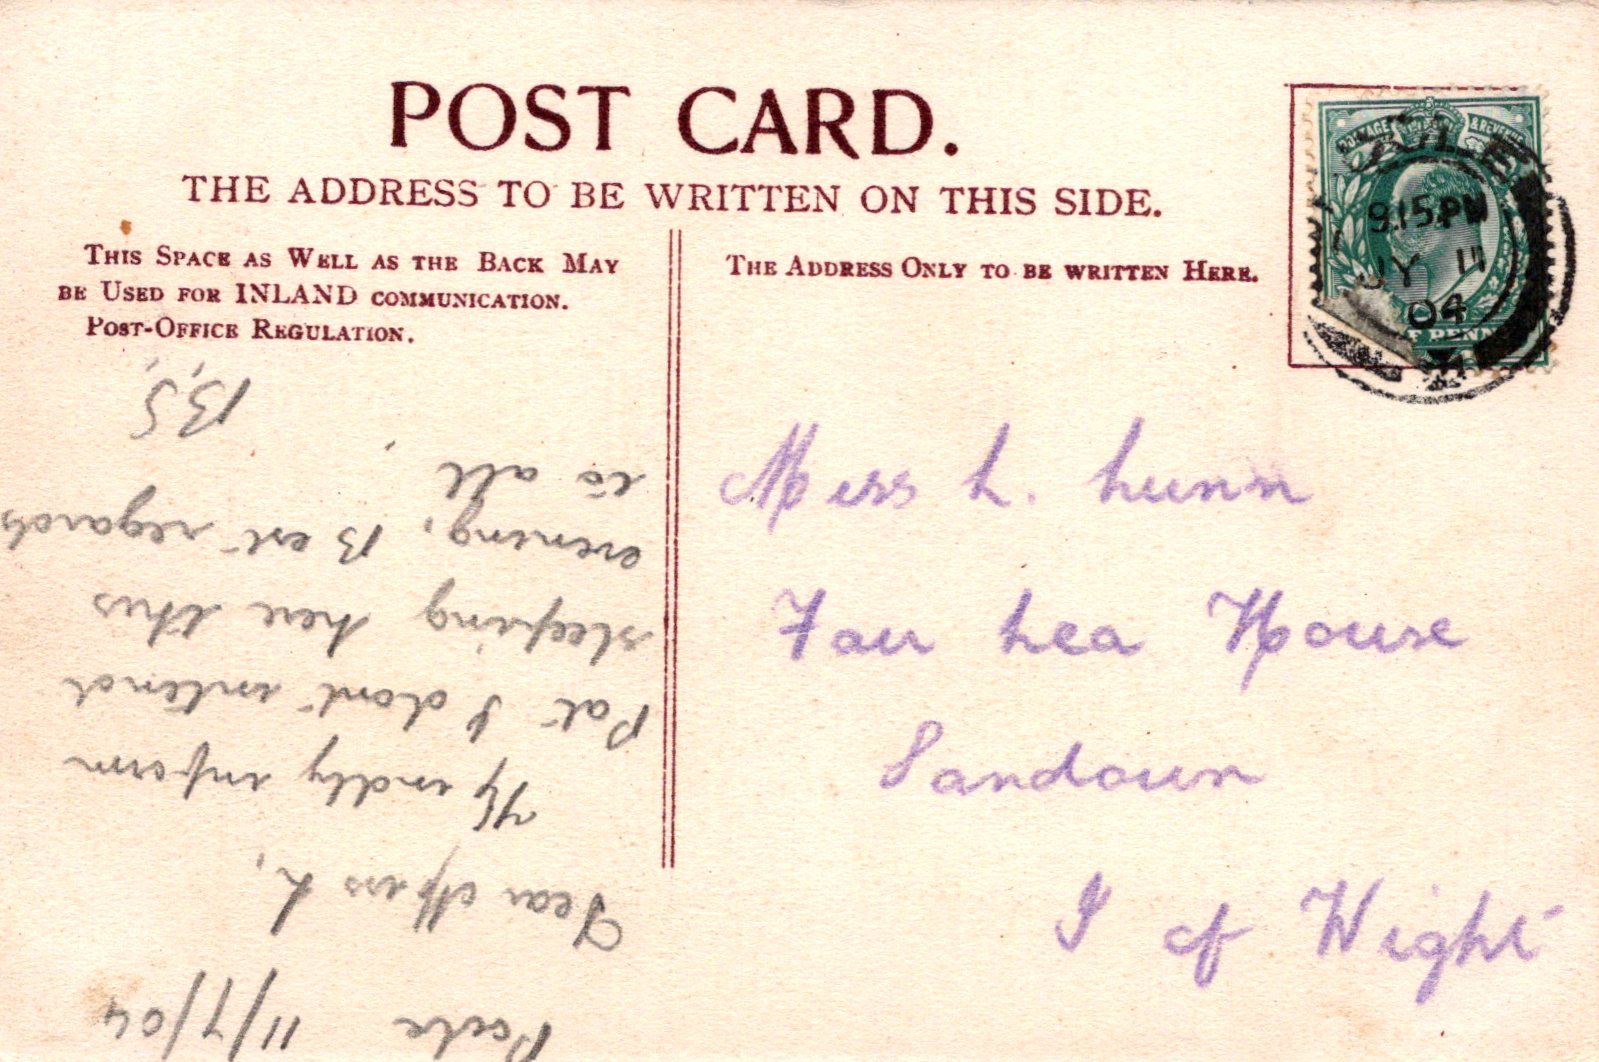 POST CARD.
THE ADDRESS TO BE WRITTEN ON THIS SIDE.
THIS SPACE AS WELL AS THE BACK MAY
BE USED FOR INLAND COMMUNICATION.
POST-OFFICE REGULATION.
THE ADDRESS ONLY TO BE WRITTEN HERE.
POSTAGE & REVENUE
9.15 PM
JY 11
04
Miss L. Lunn
Fair Lea House
Sandown
I of Wight
Poole 11/7/04
Dear Miss L,
Kindly inform
Pat I dont intend
sleeping here this
evening, Best regards
to all,
B,S,